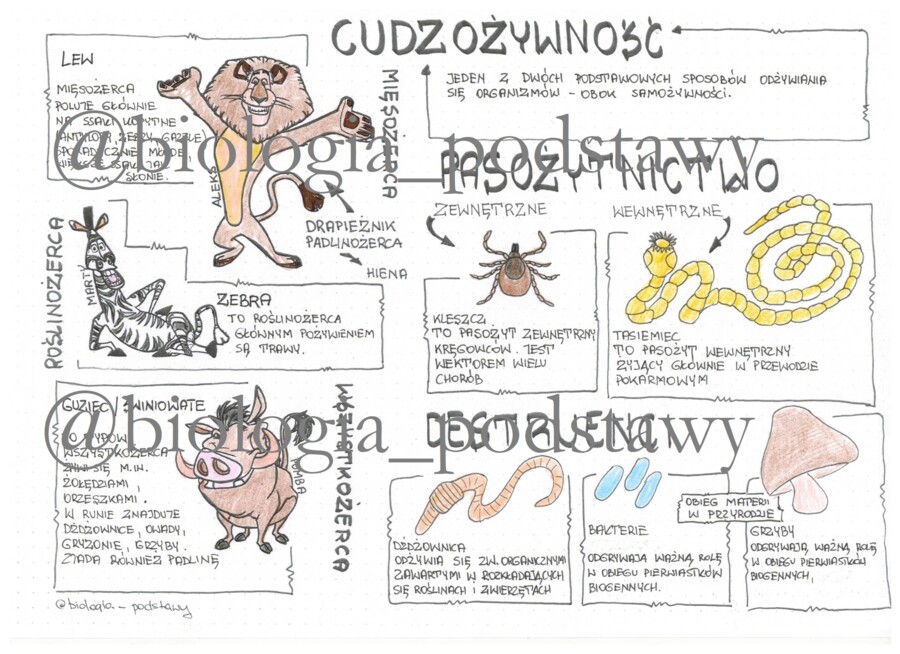 CUDZOŻYWNOŚĆ
JEDEN Z DWÓCH PODSTAWOWYCH SPOSOBÓW ODŻYWIANIA
SIĘ ORGANIZMÓW - OBOK SAMOŻYWNOŚCI.
LEW
MIĘSOŻERCA
POLUJE GŁÓWNIE
NA SSAKI KOPYTNE
(ANTYLOPY, ZEBRY, GAZELE)
SPORADYCZNIE MŁODE,
WIĘKSZE SSAKI JAK
SŁONIE.
ALEKS
MIĘSOŻERCA
DRAPIEŻNIK
PADLINOŻERCA
HIENA
@biologia_podstawy
ROŚLINOŻERCA
MARTY
ZEBRA
TO ROŚLINOŻERCA
GŁÓWNYM POŻYWIENIEM
SĄ TRAWY.
PASOŻYTNICTWO
ZEWNĘTRZNE
WEWNĘTRZNE
KLESZCZ
TO PASOŻYT ZEWNĘTRZNY
KRĘGOWCÓW. JEST
WEKTOREM WIELU
CHORÓB
TASIEMIEC
TO PASOŻYT WEWNĘTRZNY
ŻYJĄCY GŁÓWNIE W PRZEWODZIE
POKARMOWYM
GUZIEC / ŚWINIOWATE
TO TYPOWY
WSZYSTKOŻERCA
ŻYWI SIĘ M.IN.
ŻOŁĘDZIAMI,
ORZESZKAMI.
W RUNIE ZNAJDUJE
DŻDŻOWNICE, OWADY,
GRYZONIE, GRZYBY.
ZJADA RÓWNIEŻ PADLINĘ
PUMBA
WSZYSTKOŻERCA
@biologia_podstawy
DESTRUENCI
DŻDŻOWNICA
ODŻYWIA SIĘ ZW. ORGANICZNYMI
ZAWARTYMI W ROZKŁADAJĄCYCH
SIĘ ROŚLINACH I ZWIERZĘTACH
BAKTERIE
ODGRYWAJĄ WAŻNĄ ROLĘ
W OBIEGU PIERWIASTKÓW
BIOGENNYCH.
OBIEG MATERII
W PRZYRODZIE
GRZYBY
ODGRYWAJĄ WAŻNĄ ROLĘ
W OBIEGU PIERWIASTKÓW
BIOGENNYCH.
@biologia_podstawy